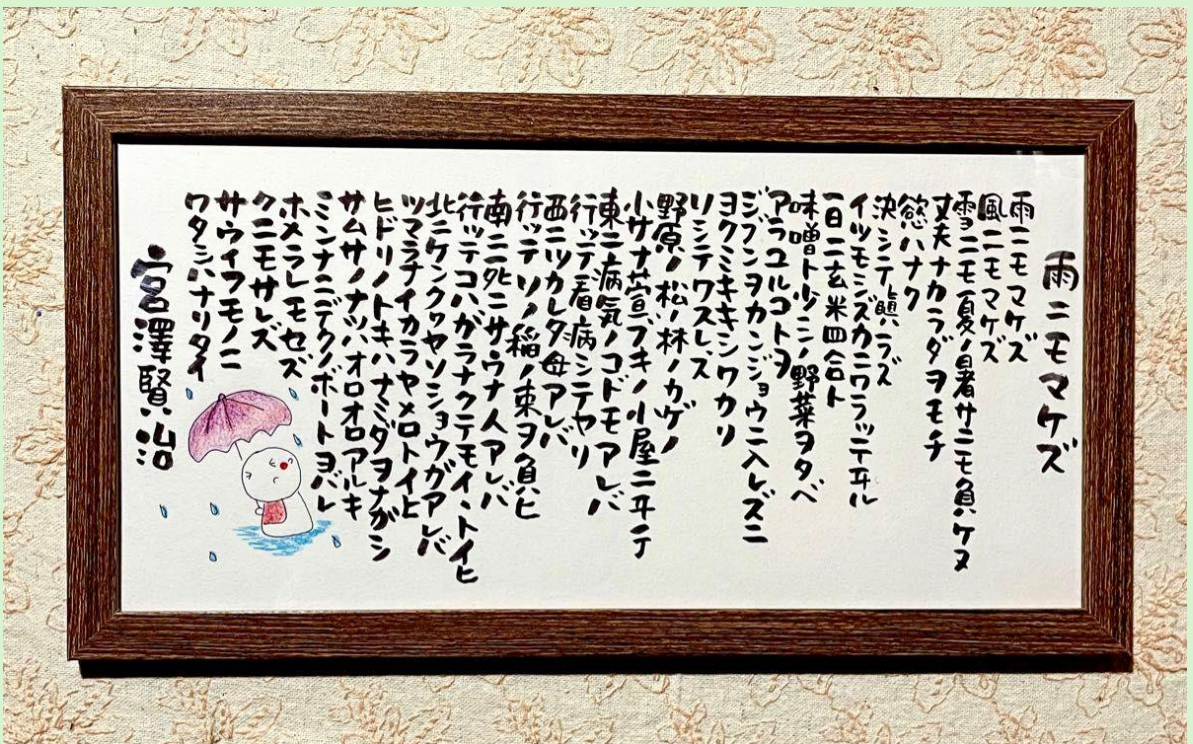 雨ニモマケズ
雨ニモマケズ
風ニモマケズ
雪ニモ夏ノ暑サニモ負ケヌ
丈夫ナカラダヲモチ
慾ハナク
決シテ瞋ラズ
イツモシズカニワラッテヰル
一日ニ玄米四合ト
味噌ト少シノ野菜ヲタベ
アラユルコトヲ
ジブンヲカンジョウニ入レズニ
ヨクミキキシワカリ
ソシテワスレズ
野原ノ松ノ林ノカゲノ
小サナ萓ブキノ小屋ニヰテ
東ニ病気ノコドモアレバ
行ッテ看病シテヤリ
西ニツカレタ母アレバ
行ッテソノ稲ノ束ヲ負ヒ
南ニ死ニサウナ人アレバ
行ッテコハガラナクテモイヽトイヒ
北ニケンクヮヤソショウガアレバ
ツマラナイカラヤメロトイヒ
ヒドリノトキハナミダヲナガシ
サムサノナツハオロオロアルキ
ミンナニデクノボートヨバレ
ホメラレモセズ
クニモサレズ
サウイフモノニ
ワタシハナリタイ
宮澤賢治